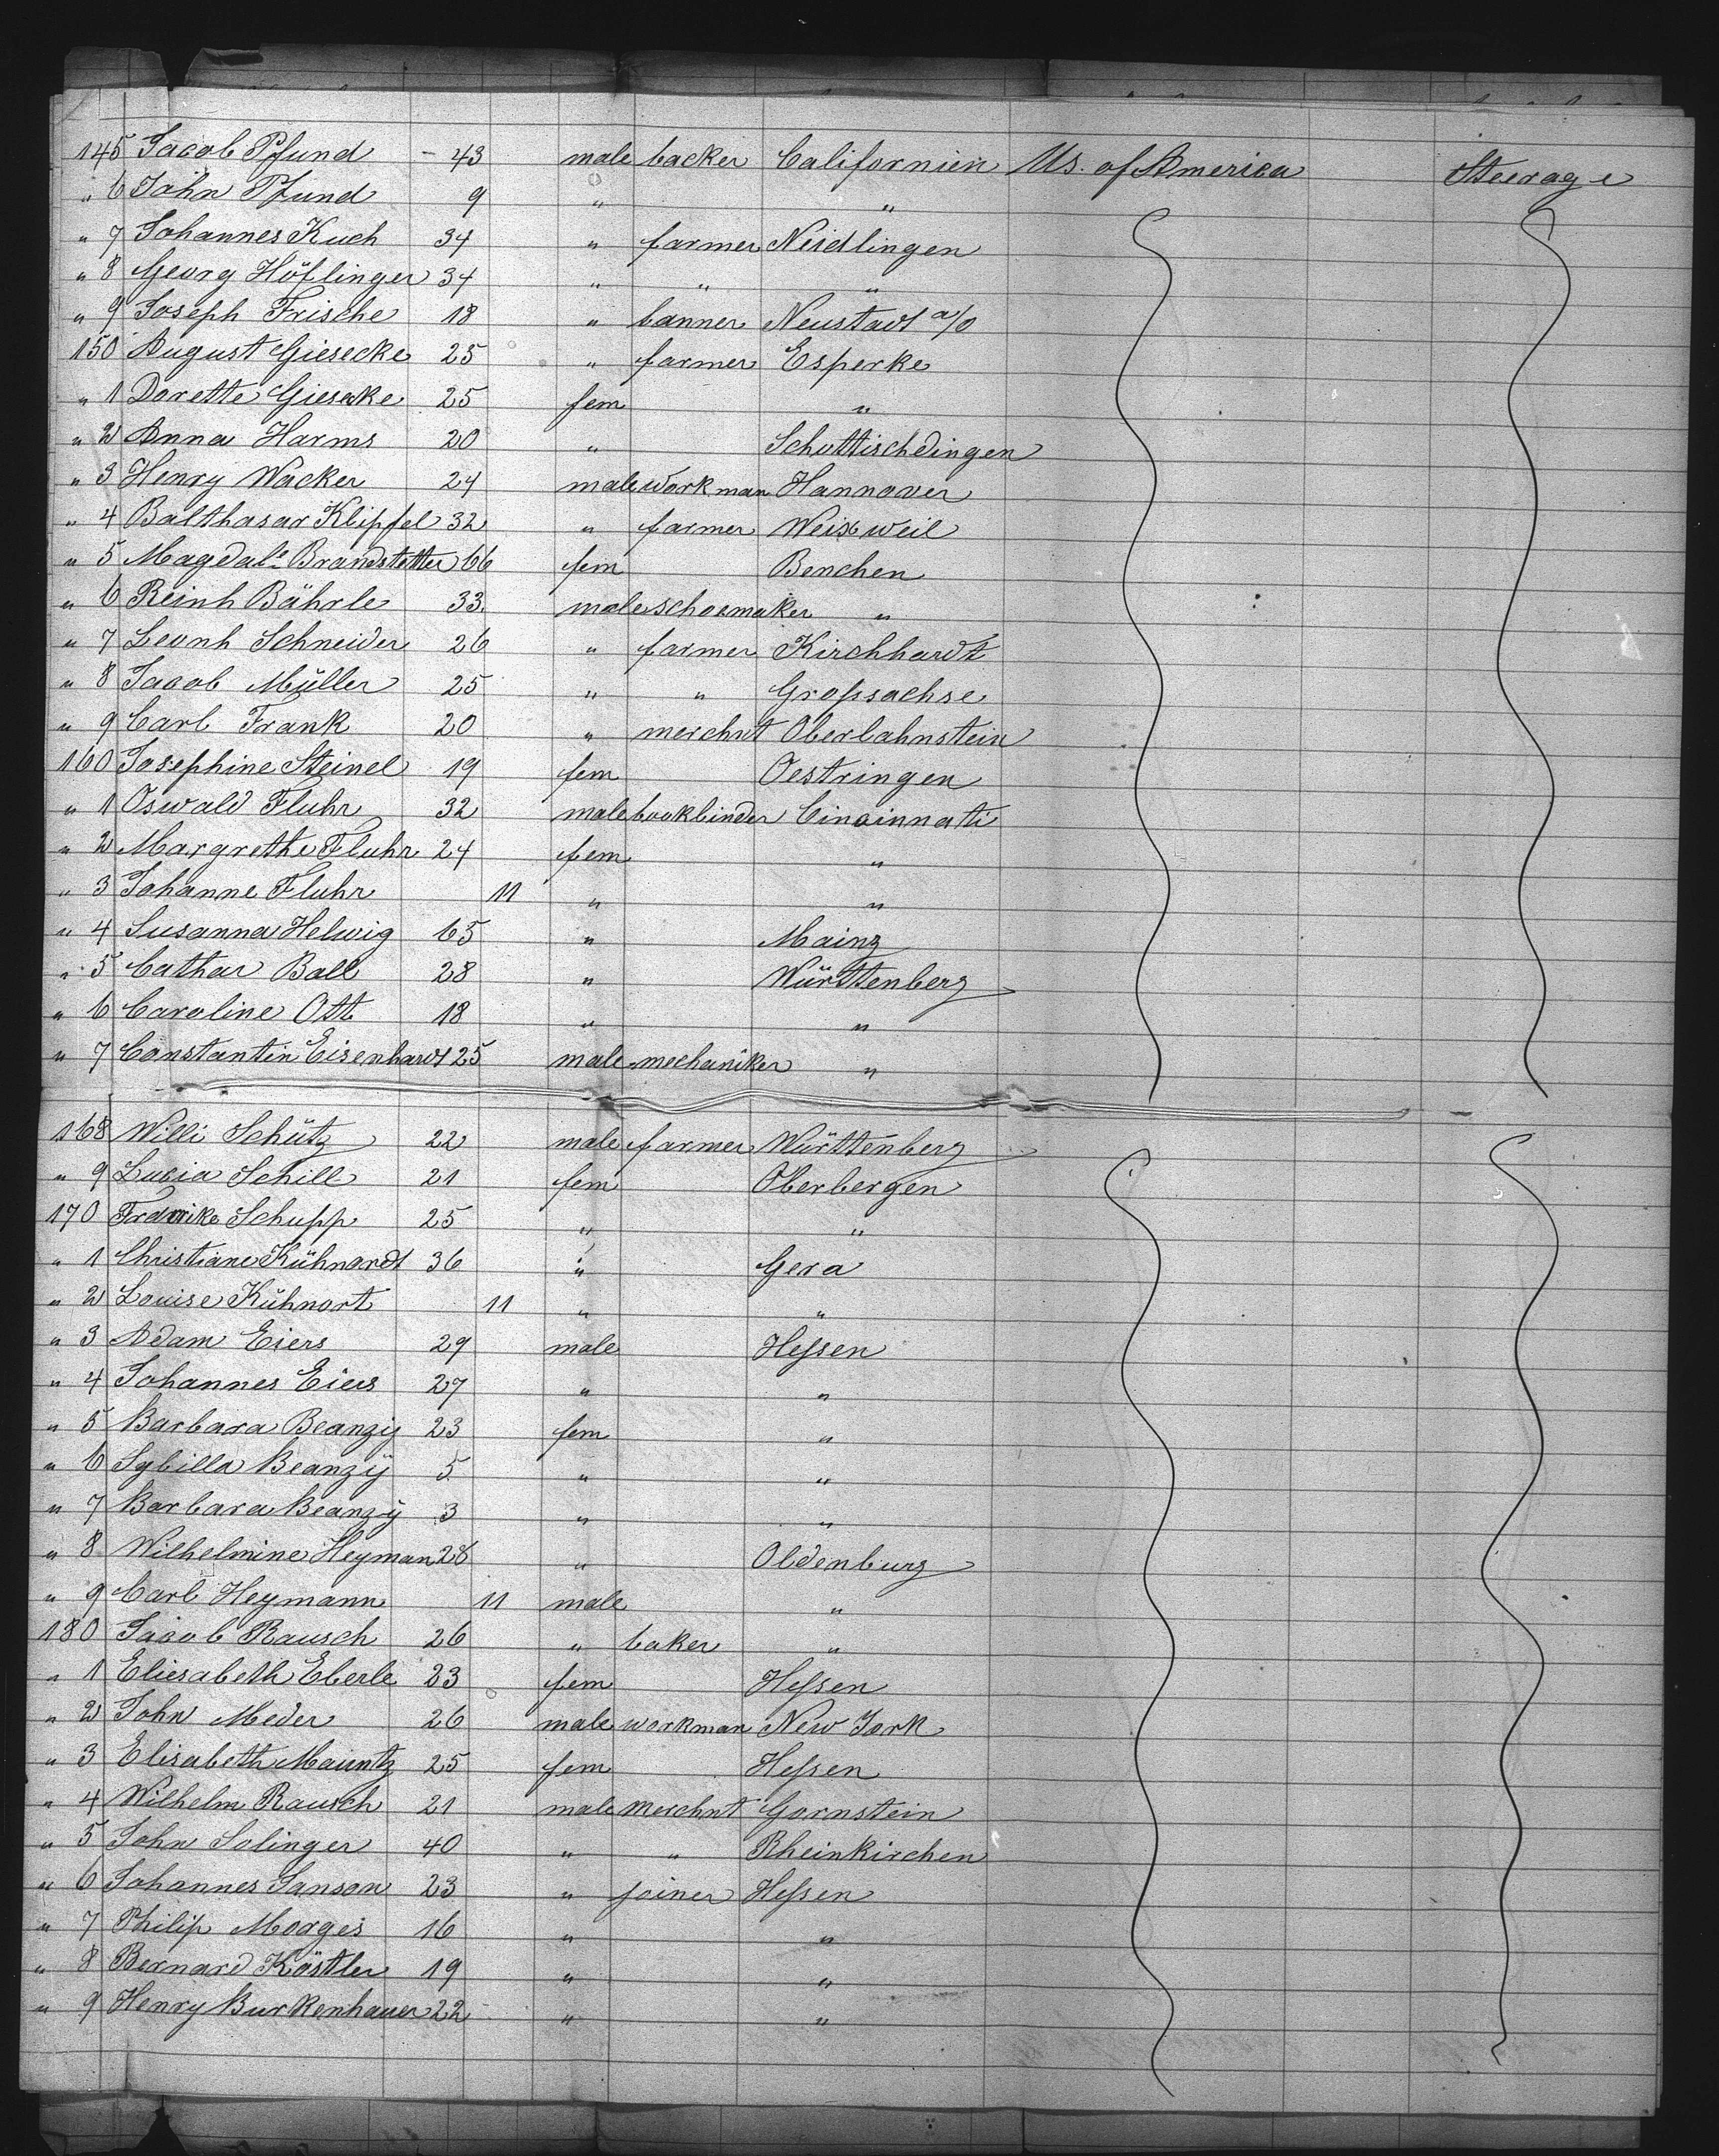 145 Jacob Pfund - 43 male backer Californien Us. of America Steerage
" 6 John Pfund 9 " "
" 7 Johannes Kuch 34 " farmer Neidlingen
" 8 Georg Höflinger 34 " " "
" 9 Joseph Frische 18 " tanner Neustadt a/O
150 August Giesecke 25 " farmer Esperke
" 1 Dorette Giesecke 25 fem "
" 2 Anna Harms 20 " Schottischdingen
" 3 Henry Wacker 24 male workman Hannover
" 4 Balthasar Klipfel 32 " farmer Weisweil
" 5 Magdale Brandstetter 66 fem Benchen
" 6 Reinh Bährle 33 male schoemaker "
" 7 Leonh Schneider 26 " farmer Kirchhardt
" 8 Jacob Müller 25 " " Großsachse
" 9 Carl Frank 20 " merchnt Oberlahnstein
160 Josephine Steinel 19 fem Oestringen
" 1 Oswald Fluhr 32 male bookbinder Cincinnati
" 2 Margrethe Fluhr 24 fem "
" 3 Johanne Fluhr 11 " "
" 4 Susanna Helwig 65 " Mainz
" 5 Cathar Ball 28 " Württenberg
" 6 Caroline Ott 18 " "
" 7 Constantin Eisenhardt 25 male mechaniker "
168 Willi Schütz 22 male farmer Württenberg
" 9 Lucia Schill 21 fem Oberbergen
170 Fredrike Schupp 25 " "
" 1 Christiane Kühnardt 36 " Gera
" 2 Louise Kühnort 11 " "
" 3 Adam Eiers 29 male Heßen
" 4 Johannes Eiers 27 " "
" 5 Barbara Beanzij 23 fem "
" 6 Sybilla Beanzÿ 5 " "
" 7 Barbara Beanzÿ 3 " "
" 8 Wilhelmine Heyman 28 " Oldenburg
" 9 Carl Heymann 11 male "
180 Jacob Rausch 26 " baker "
" 1 Eliesabeth Eberle 23 fem Heßen
" 2 John Meder 26 male workman New York
" 3 Elisabeth Mauntz 25 fem Heßen
" 4 Wilhelm Rausch 21 male merchnt Gornstein
" 5 John Solinger 40 " " Rheinkirchen
" 6 Johannes Sanson 23 " joiner Heßen
" 7 Philip Morges 16 " "
" 8 Bernard Köstler 19 " "
" 9 Henry Burkenhauer 22 " "